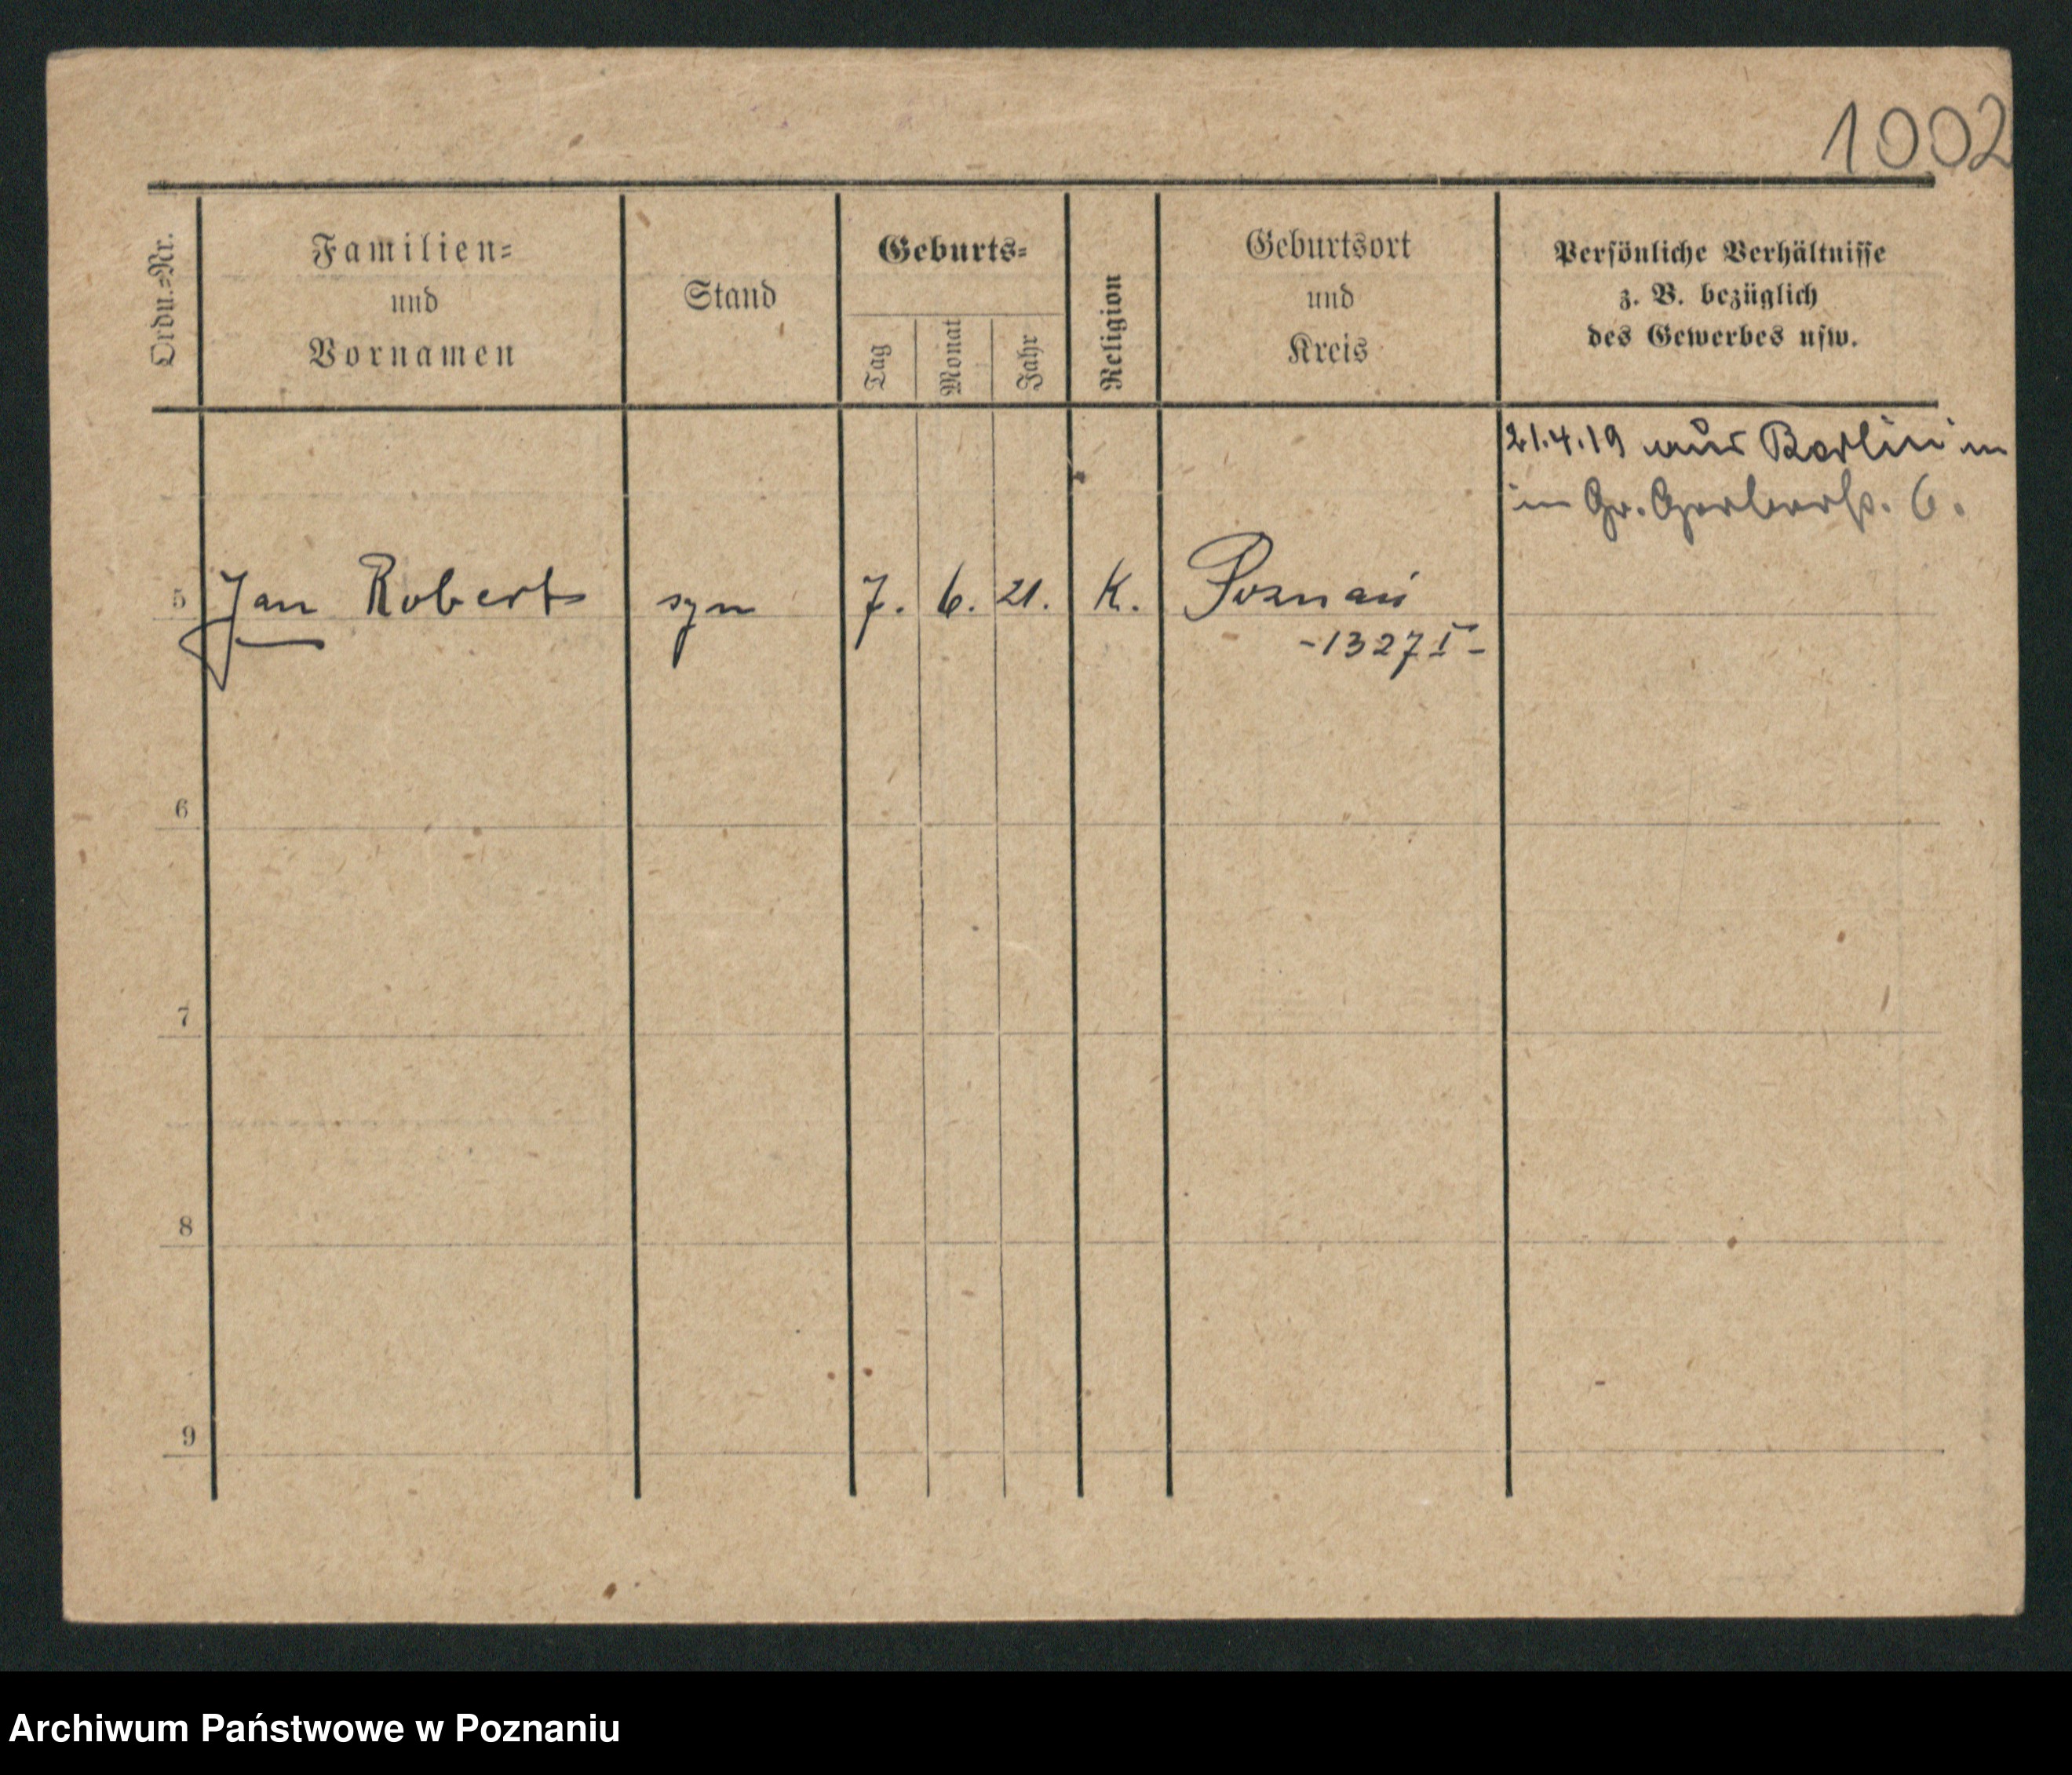 1002
Ordn.-Nr.
Familien-
und
Vornamen
Stand
Geburts-
Tag
Monat
Jahr
Religion
Geburtsort
und
Kreis
Persönliche Verhältnisse
z. B. bezüglich
des Gewerbes usw.
21.4.19 aus Berlin
in Gr. Gerberst. 6.
5 Jan Robert syn 7. 6. 21. K. Poznań
-1327 I-
6
7
8
9
Archiwum Państwowe w Poznaniu